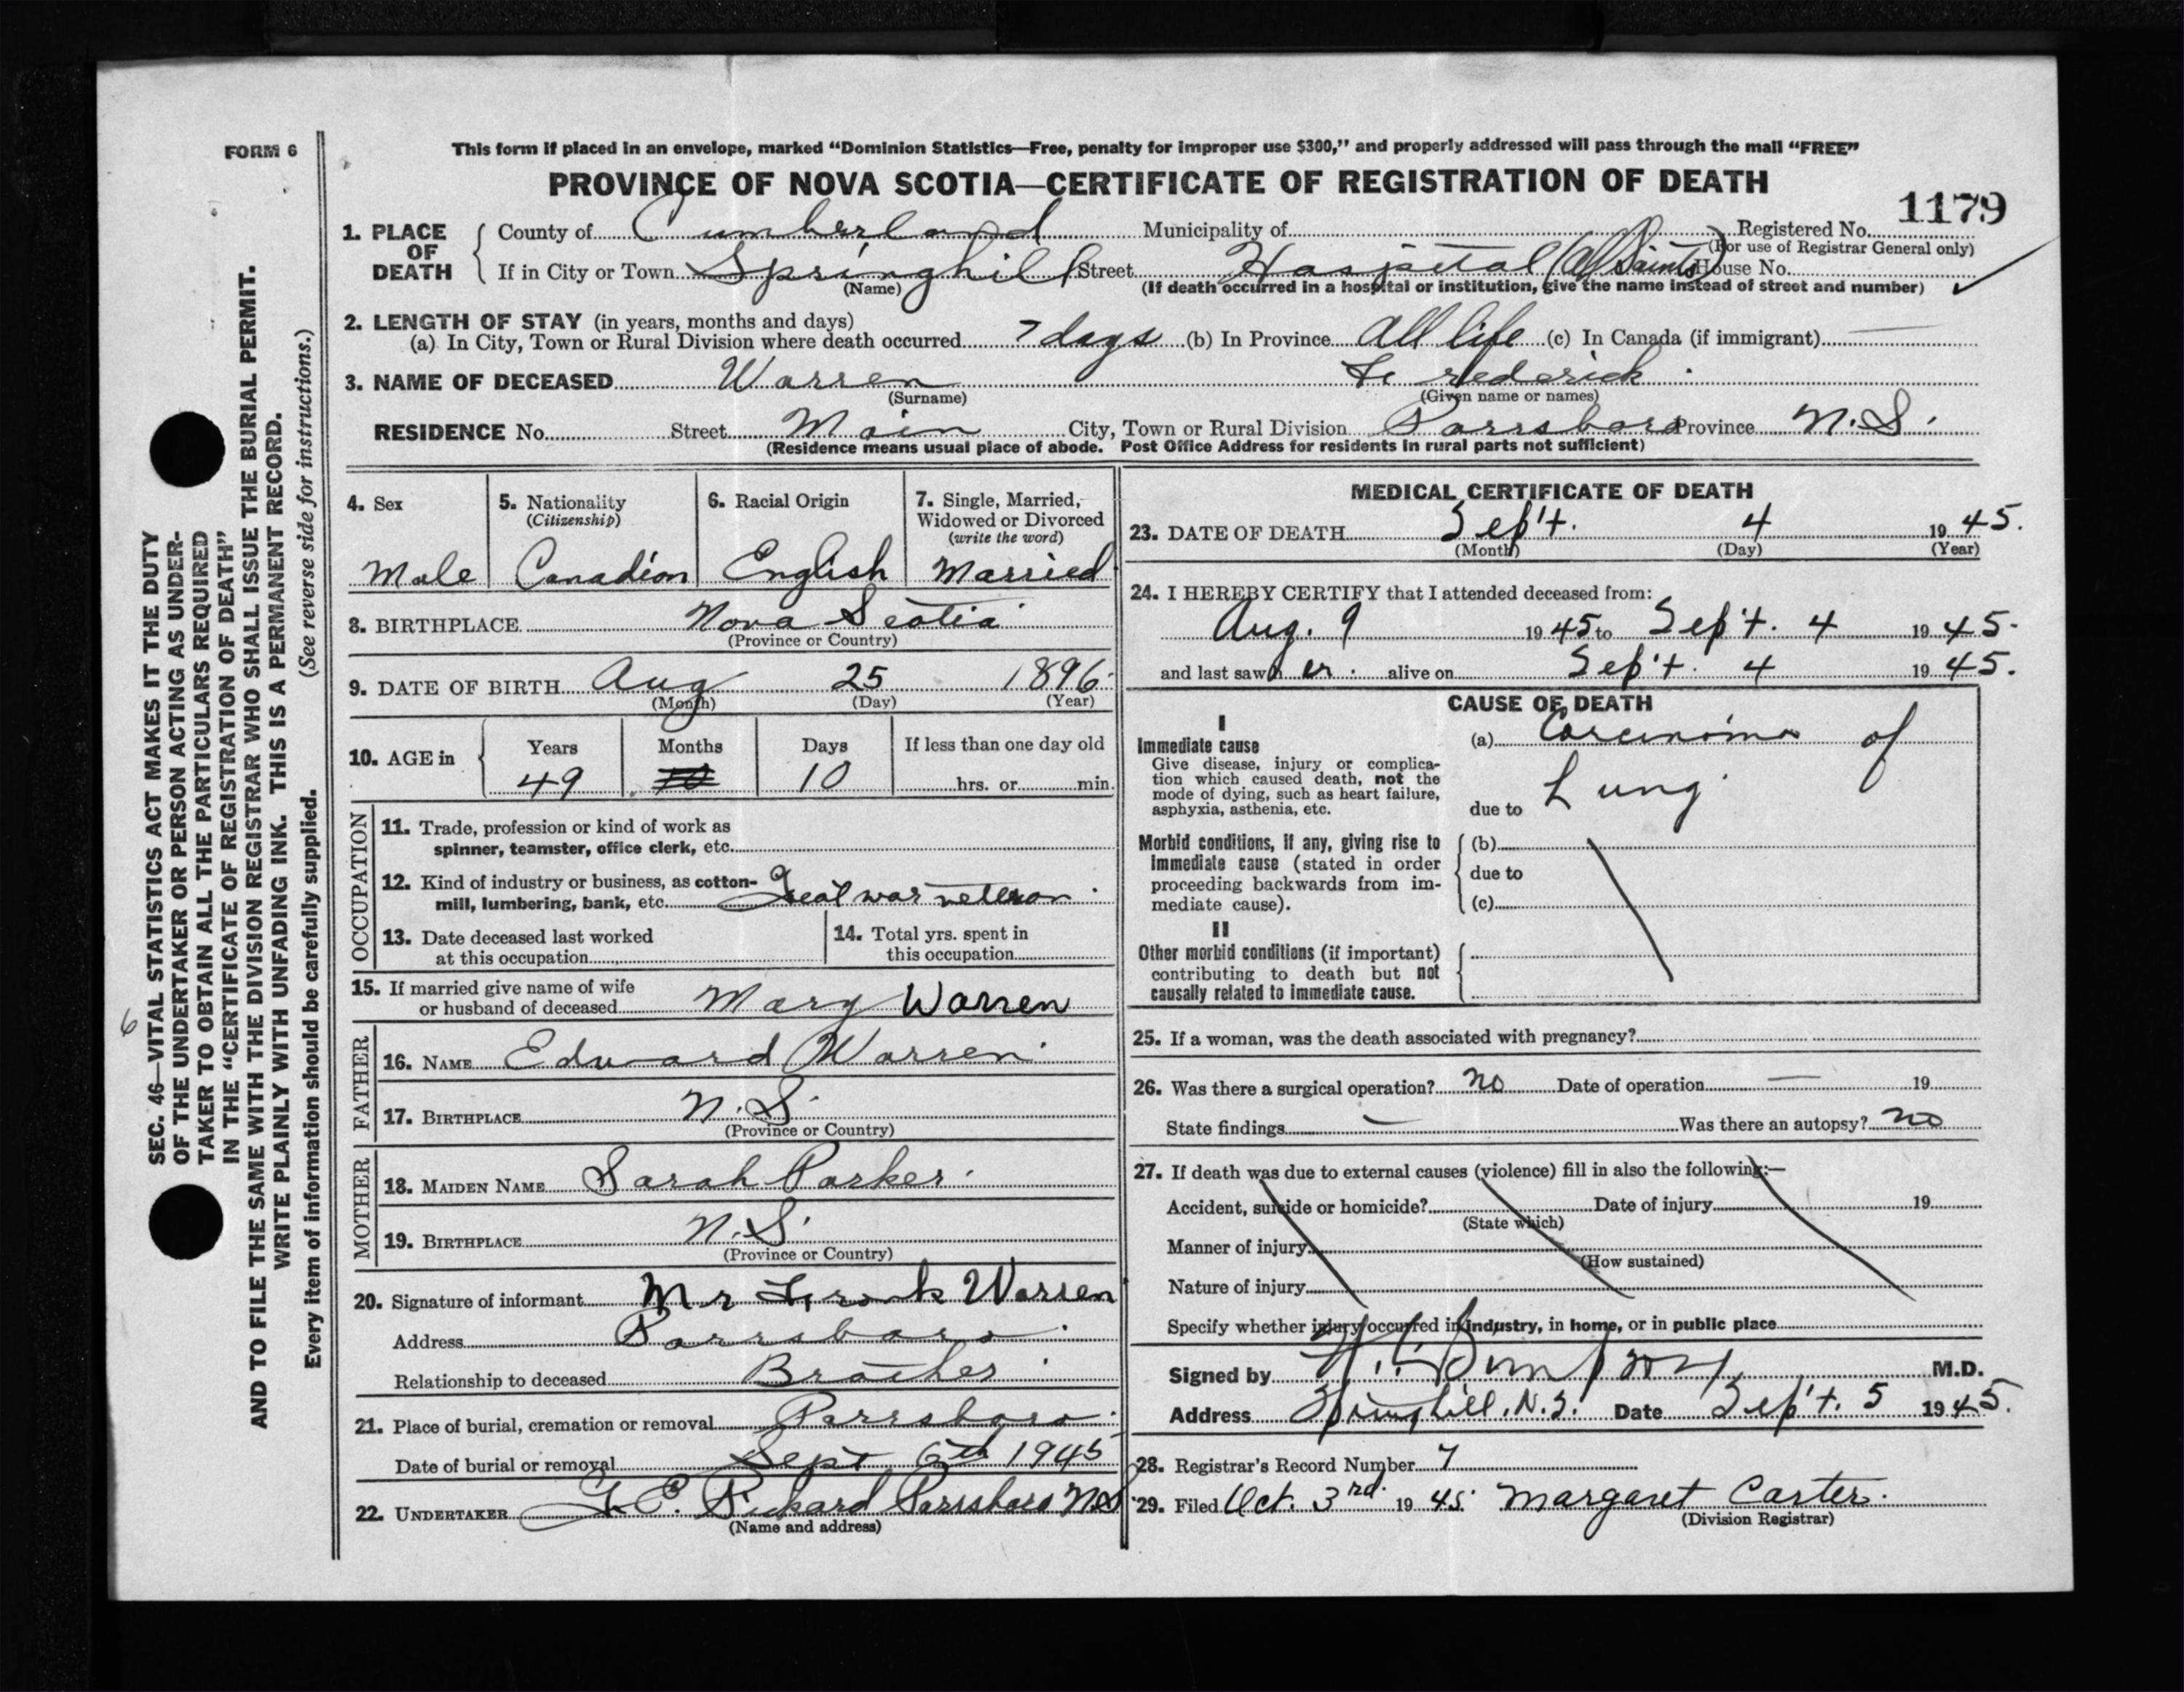 FORM 6
This form if placed in an envelope, marked “Dominion Statistics—Free, penalty for improper use $300,” and properly addressed will pass through the mail “FREE”
PROVINCE OF NOVA SCOTIA—CERTIFICATE OF REGISTRATION OF DEATH
1179
1. PLACE OF DEATH
County of Cumberland Municipality of Registered No.
(For use of Registrar General only)
If in City or Town Springhill Street Hospital (All Saints) House No.
(Name) (If death occurred in a hospital or institution, give the name instead of street and number)
2. LENGTH OF STAY (in years, months and days)
(a) In City, Town or Rural Division where death occurred 7 days (b) In Province All life (c) In Canada (if immigrant) —
3. NAME OF DECEASED Warren Frederick
(Surname) (Given name or names)
RESIDENCE No. Street Main City, Town or Rural Division Parrsboro Province N.S.
(Residence means usual place of abode. Post Office Address for residents in rural parts not sufficient)
4. Sex
Male
5. Nationality
(Citizenship)
Canadian
6. Racial Origin
English
7. Single, Married,
Widowed or Divorced
(write the word)
Married
8. BIRTHPLACE Nova Scotia
(Province or Country)
9. DATE OF BIRTH Aug 25 1896
(Month) (Day) (Year)
10. AGE in
Years Months Days If less than one day old
49 10 10 hrs. or min.
OCCUPATION
11. Trade, profession or kind of work as
spinner, teamster, office clerk, etc.
12. Kind of industry or business, as cotton-
mill, lumbering, bank, etc. Great war veteran
13. Date deceased last worked
at this occupation
14. Total yrs. spent in
this occupation
15. If married give name of wife
or husband of deceased Mary Warren
FATHER
16. NAME Edward Warren
17. BIRTHPLACE N.S.
(Province or Country)
MOTHER
18. MAIDEN NAME Sarah Parker
19. BIRTHPLACE N.S.
(Province or Country)
20. Signature of informant Mr Frank Warren
Address Parrsboro
Relationship to deceased Brother
21. Place of burial, cremation or removal Parrsboro
Date of burial or removal Sept 6th 1945
22. UNDERTAKER Rickard Parrsboro N.S
(Name and address)
MEDICAL CERTIFICATE OF DEATH
23. DATE OF DEATH Sep't. 4 1945.
(Month) (Day) (Year)
24. I HEREBY CERTIFY that I attended deceased from:
Aug. 9 1945 to Sep't. 4 1945
and last saw h er alive on Sep't. 4 1945.
CAUSE OF DEATH
I
Immediate cause
Give disease, injury or complica-
tion which caused death, not the
mode of dying, such as heart failure,
asphyxia, asthenia, etc.
(a) Carcinoma of
due to Lung
Morbid conditions, if any, giving rise to
immediate cause (stated in order
proceeding backwards from im-
mediate cause).
(b)
due to
(c)
II
Other morbid conditions (if important)
contributing to death but not
causally related to immediate cause.
25. If a woman, was the death associated with pregnancy?
26. Was there a surgical operation? no Date of operation — 19
State findings — Was there an autopsy? no
27. If death was due to external causes (violence) fill in also the following:—
Accident, suicide or homicide? Date of injury 19
(State which)
Manner of injury
(How sustained)
Nature of injury
Specify whether injury occurred in industry, in home, or in public place
Signed by M.D.
Address Springhill. N.S. Date Sep't. 5 1945.
28. Registrar's Record Number 7
29. Filed Oct. 3rd. 1945. Margaret Carter.
(Division Registrar)
6
SEC. 46—VITAL STATISTICS ACT MAKES IT THE DUTY
OF THE UNDERTAKER OR PERSON ACTING AS UNDER-
TAKER TO OBTAIN ALL THE PARTICULARS REQUIRED
IN THE “CERTIFICATE OF REGISTRATION OF DEATH”
AND TO FILE THE SAME WITH THE DIVISION REGISTRAR WHO SHALL ISSUE THE BURIAL PERMIT.
WRITE PLAINLY WITH UNFADING INK. THIS IS A PERMANENT RECORD.
Every item of information should be carefully supplied. (See reverse side for instructions.)